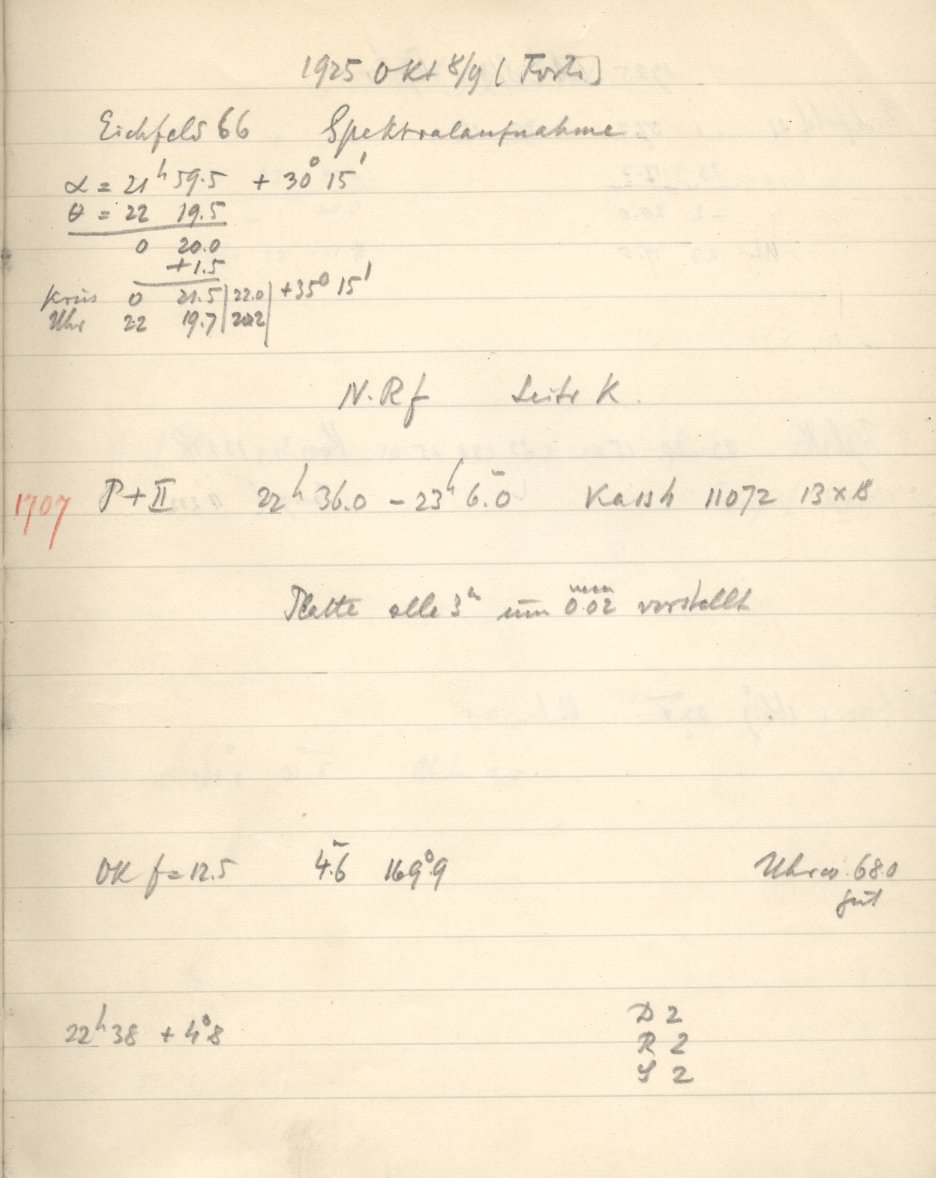 1925 Okt 8/9 [Forts]
Eichfeld 66 Spektralaufnahme
α = 21ʰ 59.5 + 30° 15'
θ = 22 19.5
0 20.0
+1.5
Kreis 0 21.5 | 22.0 | +35° 15'
Uhr 22 19.7 | 20.2 |
N.Rf Seite K.
1707 P+II 22ʰ 36.0 – 23ʰ 6.0 Kassh 11072 13 x 18
Platte alle 3ᵐ um 0.02 verstellt
OK f = 12.5 4.6 169°9
Uhrw. 680
gut
22ʰ 38 + 4°8
D 2
R 2
S 2